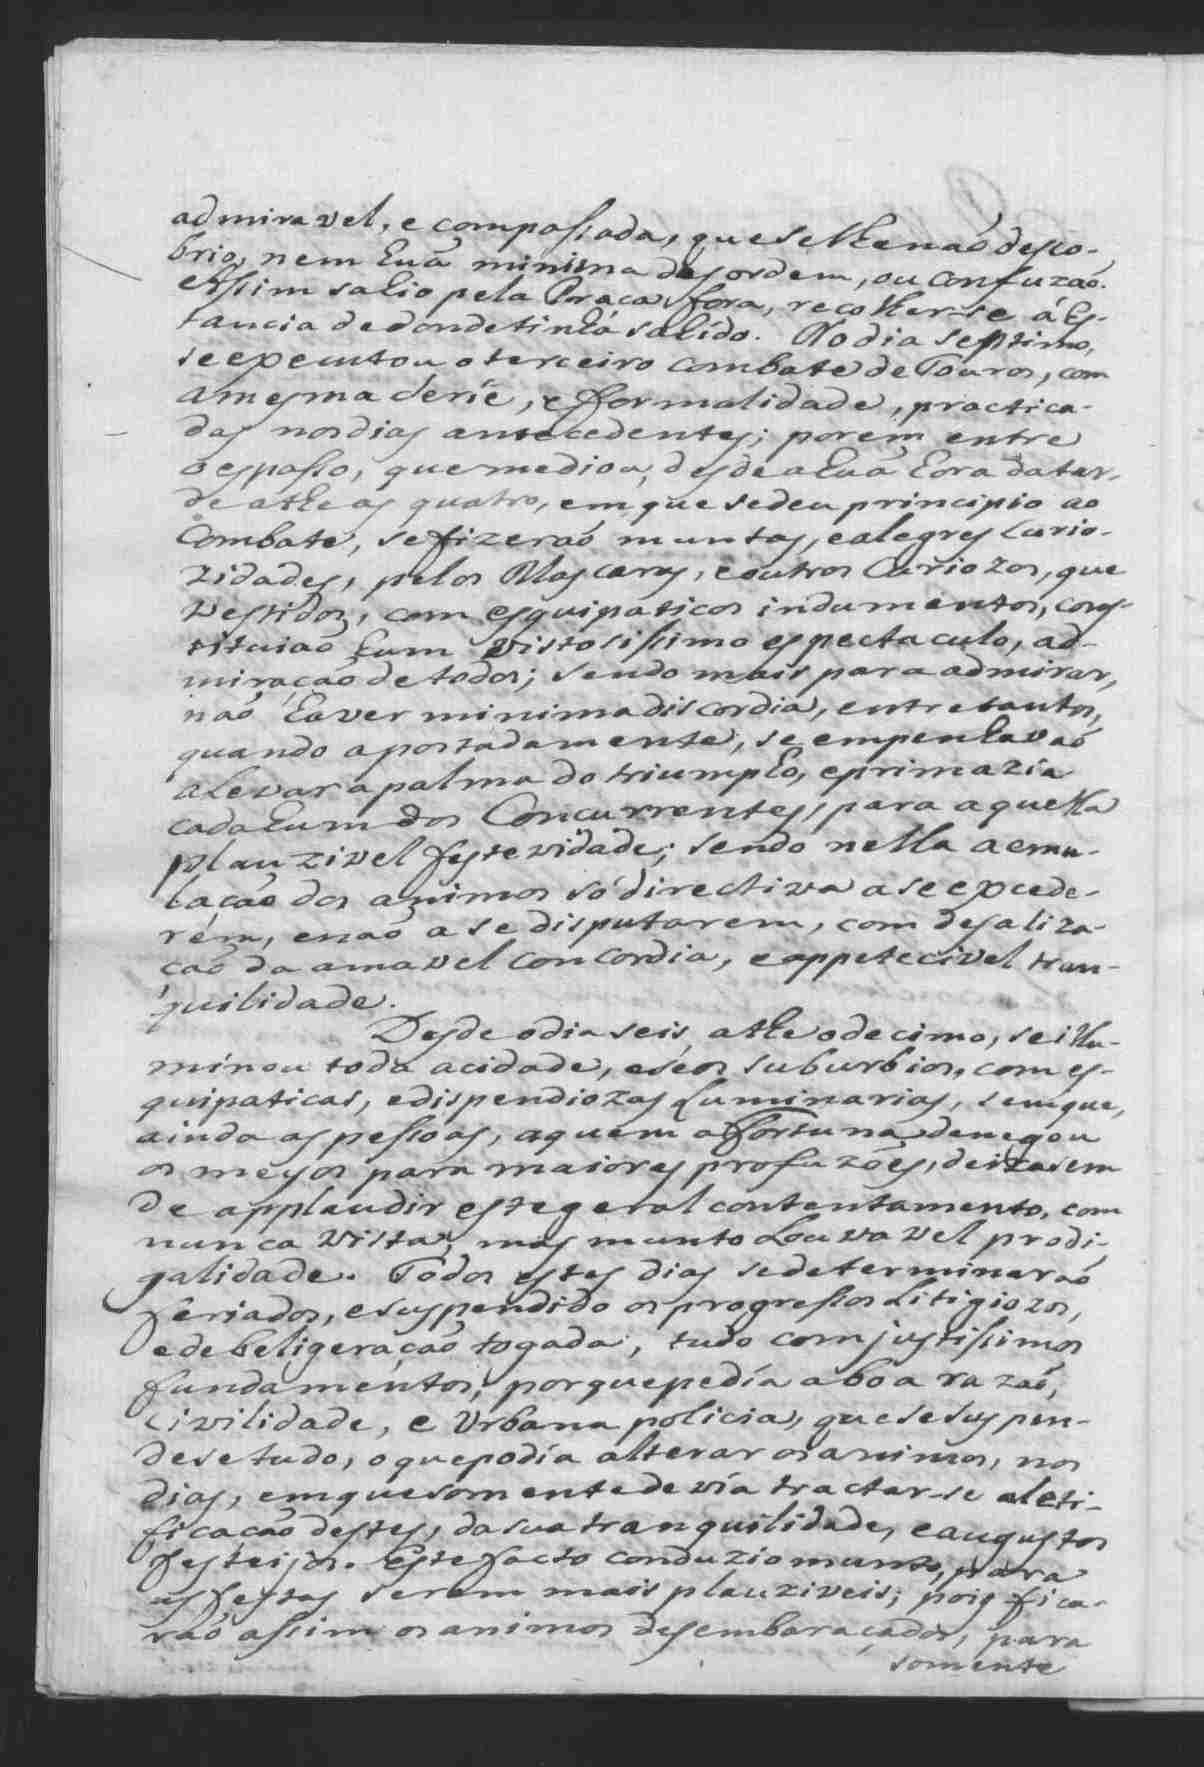 admiravel, e compassada, que se lhe naó desco-
brio, nem huã minima desordem, ou confuzaó.
Assim sahio pela Praça fora, recolher-se á Es-
tancia de donde tinhá sahído. No dia septimo,
se executou o terceiro combate de Touros, com
a mesma serie, e formalidade, practica-
das nos dias antecedentes; porem entre
o espasso, que mediou, desde a huã hora da tar-
de athe as quatro, em que se deu principio ao
Combate, se fizeraó muntas, e alegres curio-
zidades, pelos Mascaras, e outros Curiozos, que
vestidos, com esquipaticos indumentos, cons-
tituiaó hum vistosissimo espectaculo, ad-
miraçaó de todos; sendo mais para admirar,
naó haver minima discordia, entre tantos,
quando apostadamente, se empenhavaó
a levar a palma do triumpho, e primazia
cada hum dos Concurrentes, para aquella
plauzivel festevidade; sendo nella a emu-
laçaó dos animos só directiva a se excede-
rem, e naó a se disputarem, com desaliza-
çaó da amavel concordia, e appetecivel tran-
quilidade.
Desde o dia seis, athe o decimo, se illu-
minou toda a cidade, e séos suburbios, com es-
quipaticas, e dispendiozas Luminarias, sem que,
ainda as pessoas, a quem a fortuna denegou
os meyos para maiores profuzões, deixasem
de applaudir este geral contentamento, com
nunca vista, mas munto Louvavel prodi-
galidade. Todos estes dias se determinaraó
feriados, e suspendido os progressos Litigiozos,
e de beligeraçaó togada, tudo com justissimos
fundamentos; porque pedía a boa razaó,
civilidade, e Urbana policia, que se suspen-
dese tudo, o que podía alterar os animos, nos
dias, em que somente devía tractar-se a leti-
ficaçaó destes, da sua tranquilidade, e augustos
festeijos. Este facto conduzio munto, para
as festas serem mais plauziveis; pois fica-
raó assim os animos desembaraçados, para
somente